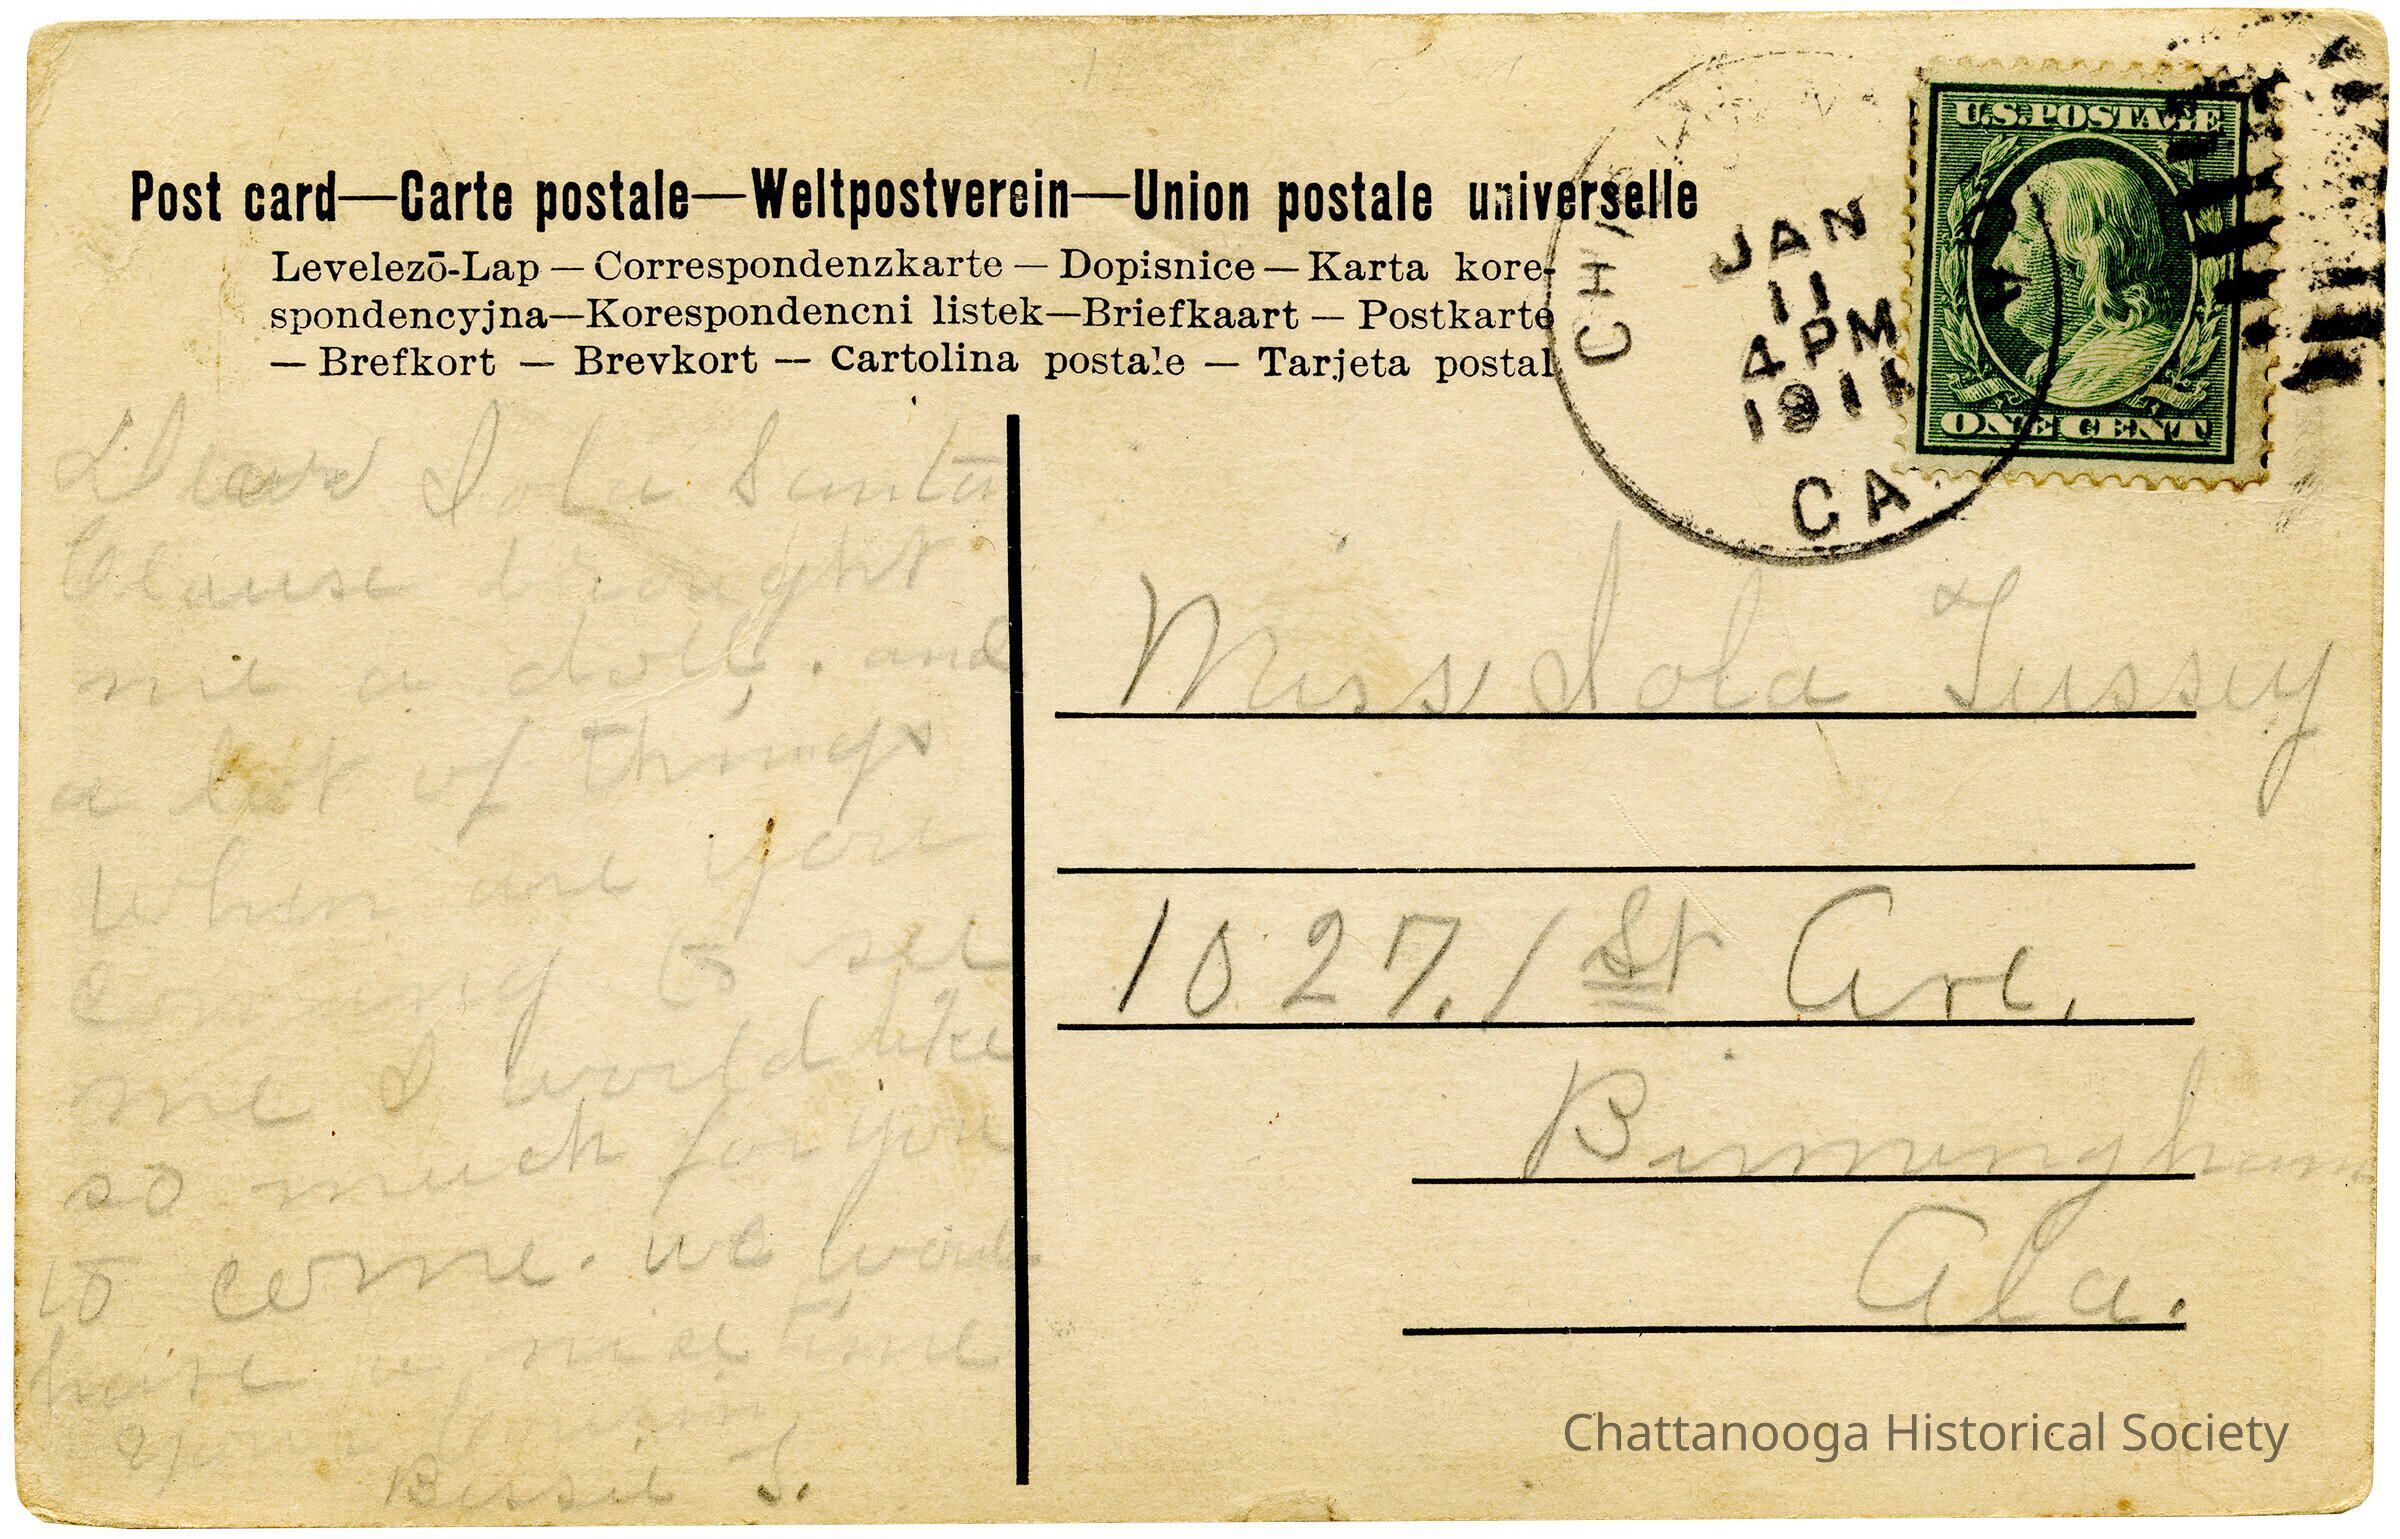 Post card—Carte postale—Weltpostverein—Union postale universelle
Levelezō-Lap — Correspondenzkarte — Dopisnice — Karta kore-
spondencyjna—Korespondencni listek—Briefkaart — Postkarte
— Brefkort — Brevkort — Cartolina postale — Tarjeta postal
U.S. POSTAGE
ONE CENT
JAN
11
4 PM
1911
GA.
Dear Iola Santa
Clause brought
me a doll, and
a lot of things
when are you
coming to see
me I would like
so much for you
to come. we would
have a nice time
your Cousin,
Bessie T.
Miss Iola Tussey
1027. 1st Ave.
Birmingham
Ala.
Chattanooga Historical Society